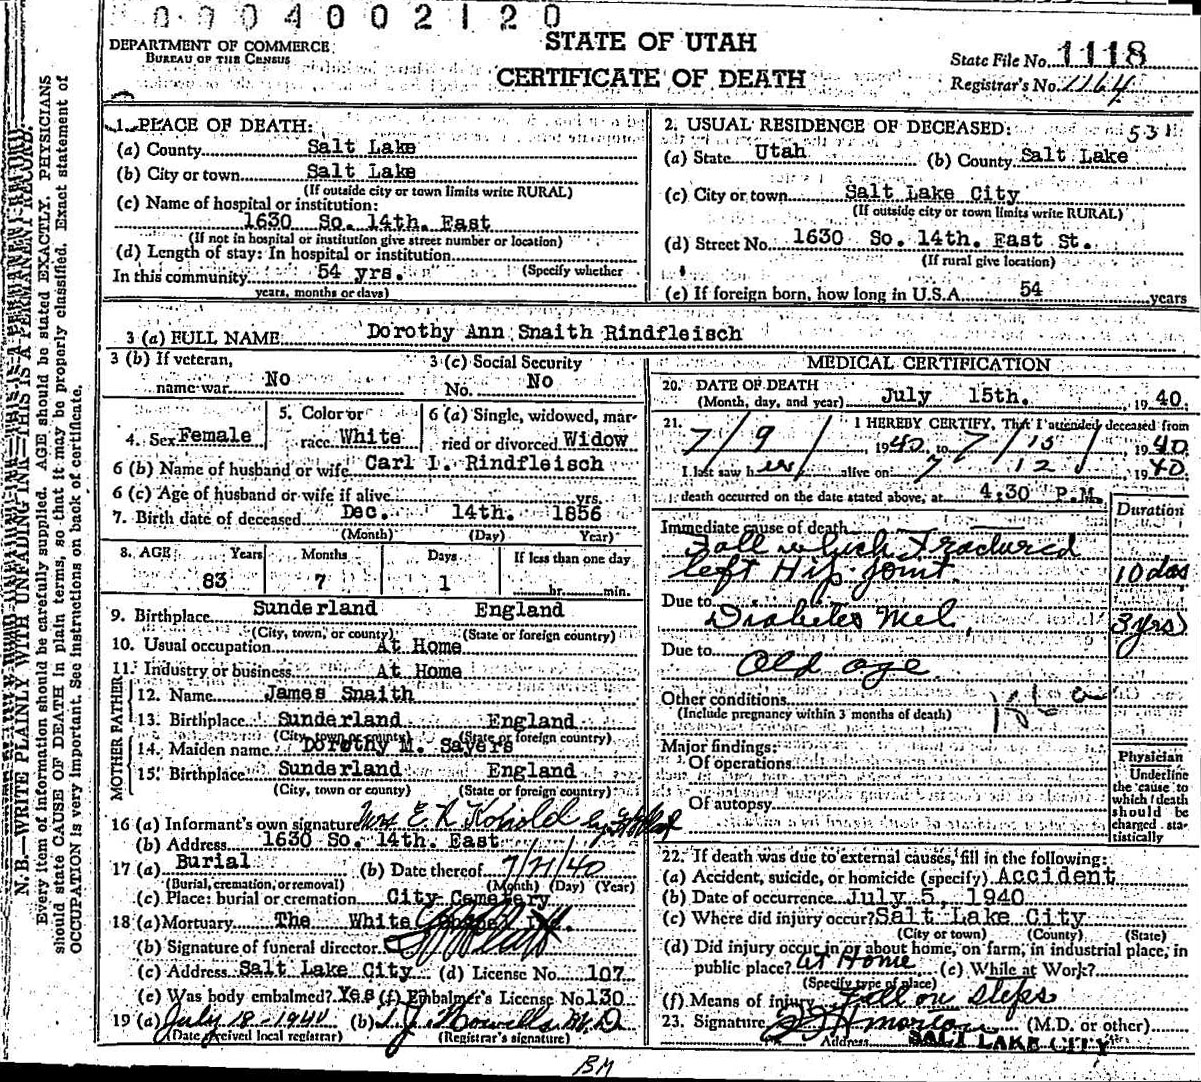 0904002120
DEPARTMENT OF COMMERCE
BUREAU OF THE CENSUS
STATE OF UTAH
CERTIFICATE OF DEATH
State File No. 1118
Registrar's No. 1164
N. B.—WRITE PLAINLY WITH UNFADING INK—THIS IS A PERMANENT RECORD.
Every item of information should be carefully supplied. AGE should be stated EXACTLY. PHYSICIANS
should state CAUSE OF DEATH in plain terms, so that it may be properly classified. Exact statement of
OCCUPATION is very important. See instructions on back of certificate.
1. PLACE OF DEATH:
(a) County Salt Lake
(b) City or town Salt Lake
(If outside city or town limits write RURAL)
(c) Name of hospital or institution:
1630 So. 14th. East
(If not in hospital or institution give street number or location)
(d) Length of stay: In hospital or institution
In this community 54 yrs. (Specify whether
years, months or days)
2. USUAL RESIDENCE OF DECEASED: 531
(a) State Utah (b) County Salt Lake
(c) City or town Salt Lake City
(If outside city or town limits write RURAL)
(d) Street No. 1630 So. 14th. East St.
(If rural give location)
(e) If foreign born, how long in U.S.A. 54 years
3 (a) FULL NAME Dorothy Ann Snaith Rindfleisch
3 (b) If veteran,
name war No
3 (c) Social Security
No. No
4. Sex Female
5. Color or
race White
6 (a) Single, widowed, mar-
ried or divorced Widow
6 (b) Name of husband or wife Carl I. Rindfleisch
6 (c) Age of husband or wife if alive yrs.
7. Birth date of deceased Dec. 14th. 1856
(Month) (Day) Year)
8. AGE Years Months Days If less than one day
83 7 1 hr. min.
9. Birthplace Sunderland England
(City, town, or county) (State or foreign country)
10. Usual occupation At Home
11. Industry or business At Home
FATHER
12. Name James Snaith
13. Birthplace Sunderland England
(City, town or county) (State or foreign country)
MOTHER
14. Maiden name Dorothy M. Sayers
15. Birthplace Sunderland England
(City, town or county) (State or foreign country)
16 (a) Informant's own signature Mrs E R Kohold by
(b) Address 1630 So. 14th. East
17 (a) Burial (b) Date thereof 7/21/40
(Burial, cremation, or removal) (Month) (Day) (Year)
(c) Place: burial or cremation City Cemetery
18 (a) Mortuary The White
(b) Signature of funeral director
(c) Address Salt Lake City (d) License No. 107
(e) Was body embalmed? Yes (f) Embalmer's License No. 130
19 (a) July 18-1940 (b) T. J. Howells M.D.
(Date received local registrar) (Registrar's signature)
MEDICAL CERTIFICATION
20. DATE OF DEATH
(Month, day, and year) July 15th. , 19 40.
21. I HEREBY CERTIFY, That I attended deceased from
7/9/ 1940, to 7/15/ , 1940
I last saw her alive on 7 12 , 1940
death occurred on the date stated above, at 4:30 P.M.
Duration
Immediate cause of death
Fall which Fractured
left Hip joint. 10 das
Due to
Diabetes Mel, 3 yrs
Due to
Old age
Other conditions
(Include pregnancy within 3 months of death)
186 a
Major findings:
Of operations
Of autopsy
Physician
Underline
the cause to
which death
should be
charged sta-
tistically
22. If death was due to external causes, fill in the following:
(a) Accident, suicide, or homicide (specify) Accident
(b) Date of occurrence July 5, 1940
(c) Where did injury occur? Salt Lake City
(City or town) (County) (State)
(d) Did injury occur in or about home, on farm, in industrial place, in
public place? at Home (e) While at Work?
(Specify type of place)
(f) Means of injury Fall on steps
23. Signature (M.D. or other)
Address SALT LAKE CITY
BM